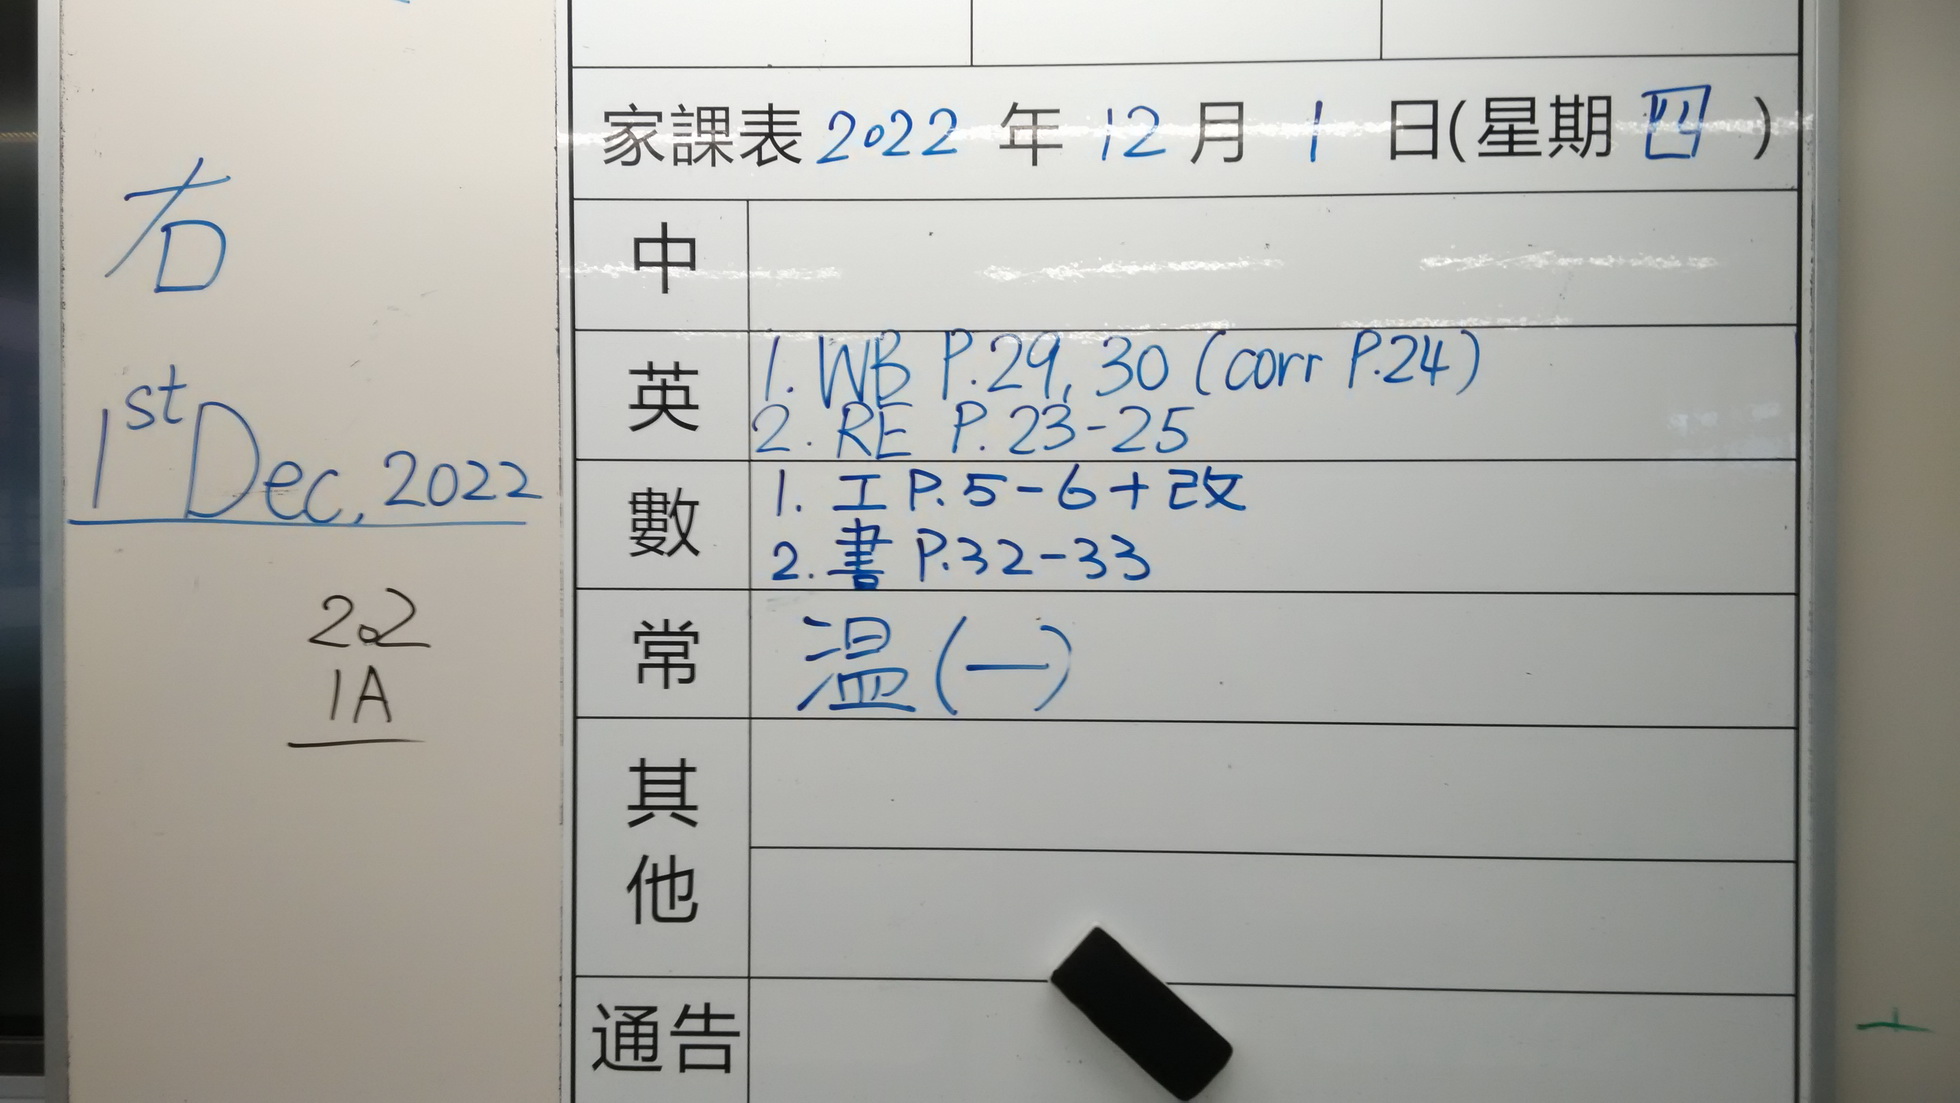 右
1st Dec, 2022
22
1A
家課表 2022 年 12 月 1 日(星期 四 )
中
英
1. WB P.29, 30 (corr P.24)
2. RE P. 23-25
數
1. 工 P. 5-6 + 改
2. 書 P.32-33
常
温 (一)
其
他
通告